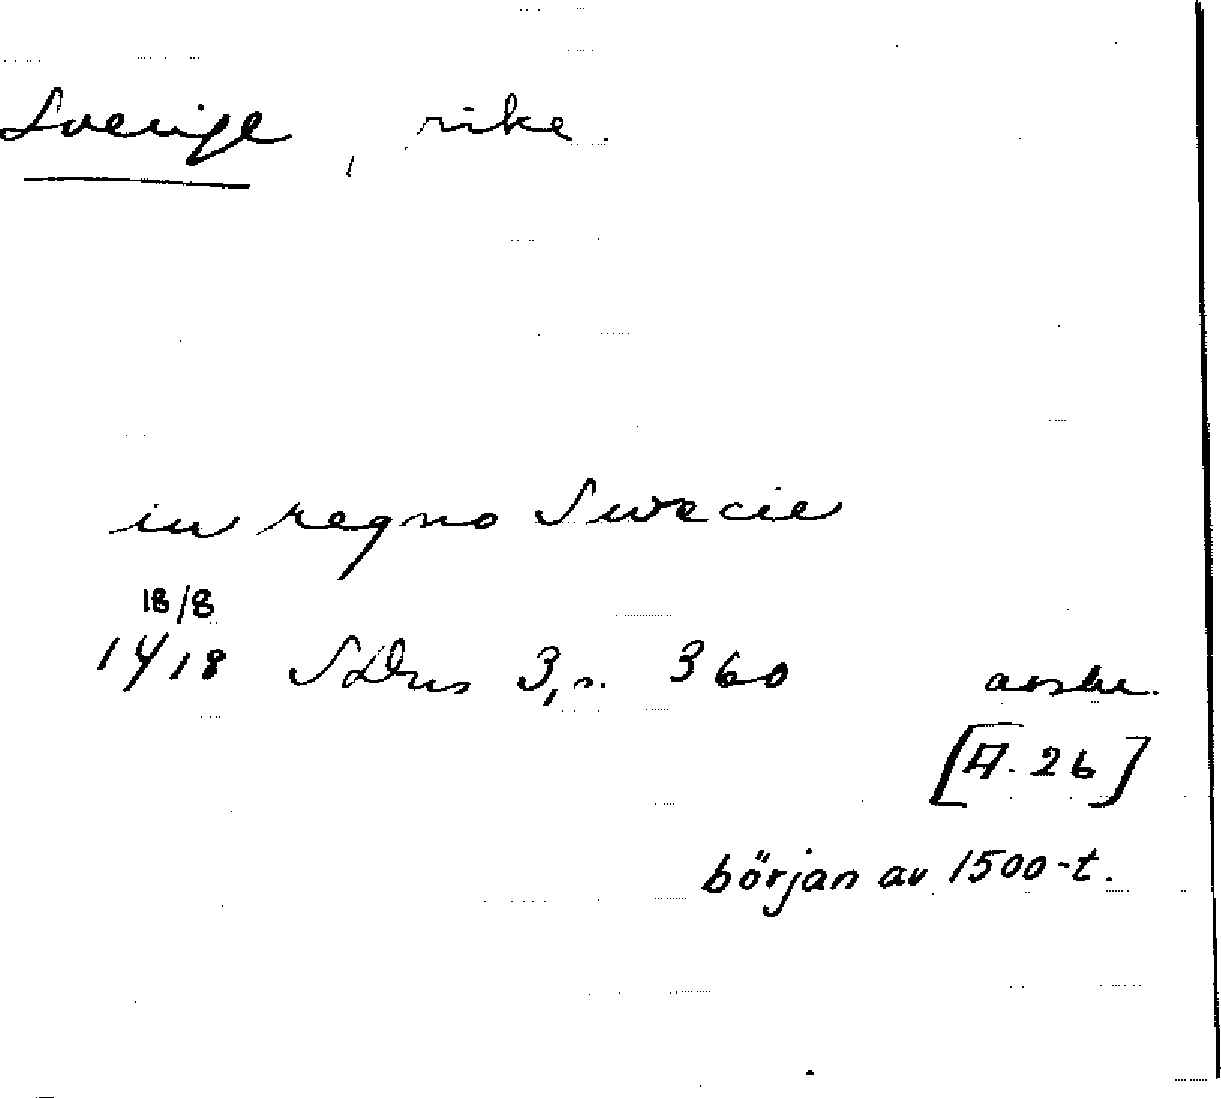 Sverige, rike.
in regno Swecie
18/8
1418 SDns 3, s. 360 avskr.
[A. 26]
början av 1500-t.